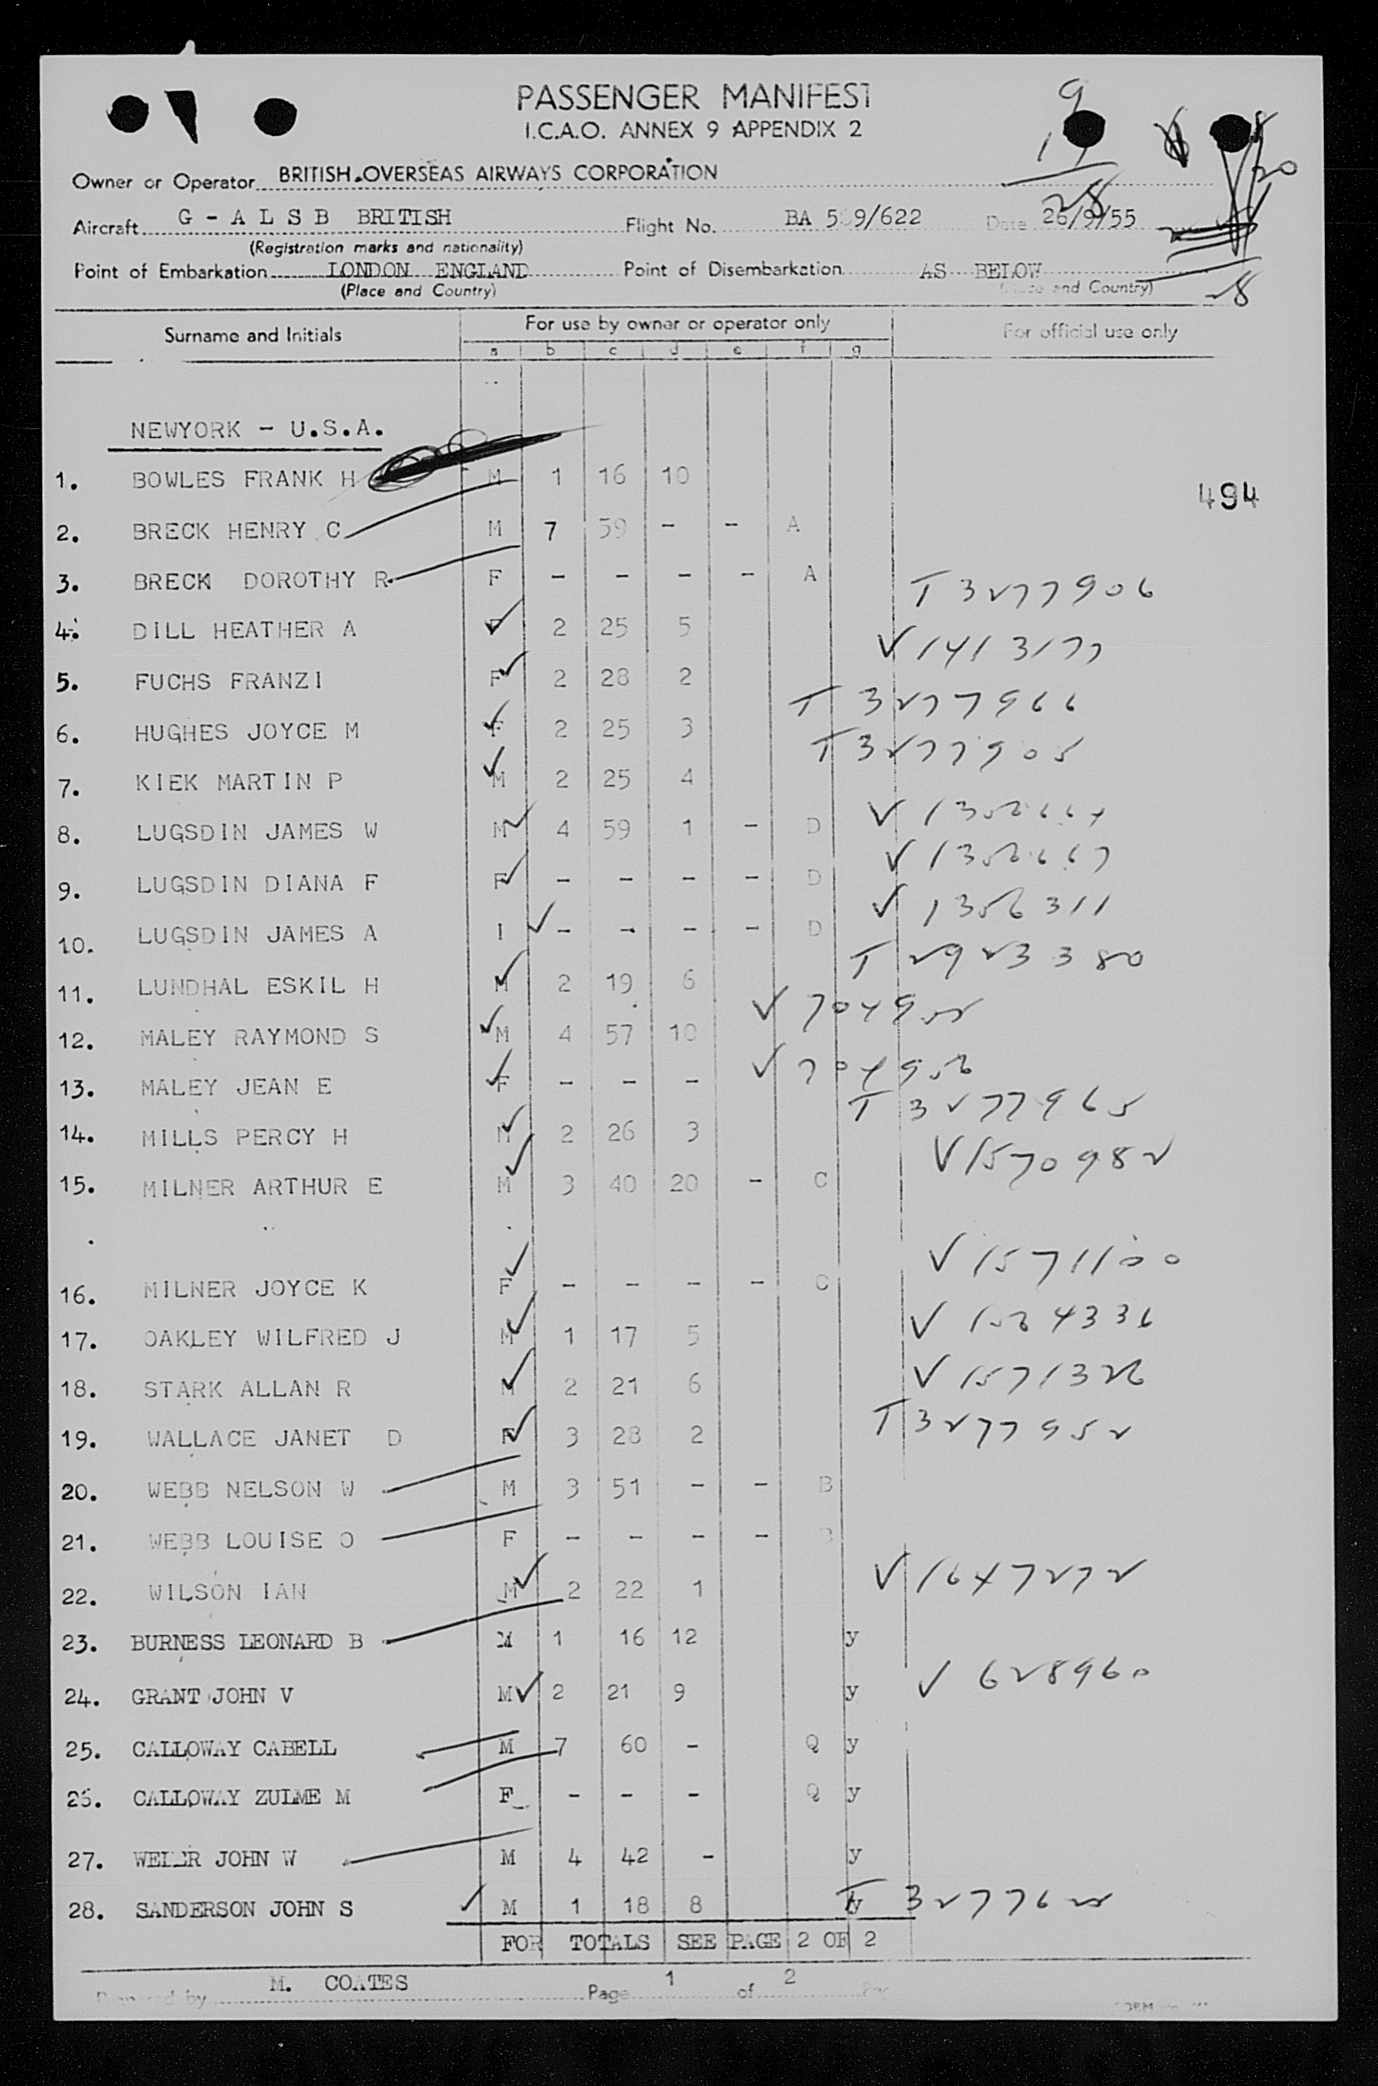 PASSENGER MANIFEST
I.C.A.O. ANNEX 9 APPENDIX 2
Owner or Operator BRITISH OVERSEAS AIRWAYS CORPORATION
Aircraft G - A L S B BRITISH Flight No. BA 5 9/622 Date 26/9/55
(Registration marks and nationality)
Point of Embarkation LONDON ENGLAND Point of Disembarkation AS BELOW
(Place and Country) and Country)
28
Surname and Initials For use by owner or operator only For official use only
a b c d e f g
NEWYORK - U.S.A.
1. BOWLES FRANK H M 1 16 10
494
2. BRECK HENRY C M 7 59 - - A
3. BRECK DOROTHY R F - - - - A
T 3277906
4. DILL HEATHER A F 2 25 5
V 1413177
5. FUCHS FRANZI F 2 28 2
T 3277966
6. HUGHES JOYCE M F 2 25 3
T 3277905
7. KIEK MARTIN P M 2 25 4
8. LUGSDIN JAMES W M 4 59 1 - D
9. LUGSDIN DIANA F F - - - - D
V 1356311
10. LUGSDIN JAMES A I - - - - D
T 2923380
11. LUNDHAL ESKIL H M 2 19 6
V 704955
12. MALEY RAYMOND S M 4 57 10
V 704956
13. MALEY JEAN E F - - -
T 3277965
14. MILLS PERCY H M 2 26 3
V 1570982
15. MILNER ARTHUR E M 3 40 20 - C
V 1571100
16. MILNER JOYCE K F - - - - C
17. OAKLEY WILFRED J M 1 17 5
V 1571326
18. STARK ALLAN R M 2 21 6
T 3277952
19. WALLACE JANET D F 3 28 2
20. WEBB NELSON W M 3 51 - - B
21. WEBB LOUISE O F - - - - B
V 1647272
22. WILSON IAN M 2 22 1
23. BURNESS LEONARD B M 1 16 12 y
V 628960
24. GRANT JOHN V M 2 21 9 y
25. CALLOWAY CABELL M 7 60 - Q y
26. CALLOWAY ZULME M F - - - Q y
27. JOHN W M 4 42 - y
28. SANDERSON JOHN S M 1 18 8 y T 3277625
FOR TOTALS SEE PAGE 2 OF 2
Prepared by M. COATES Page 1 of 2